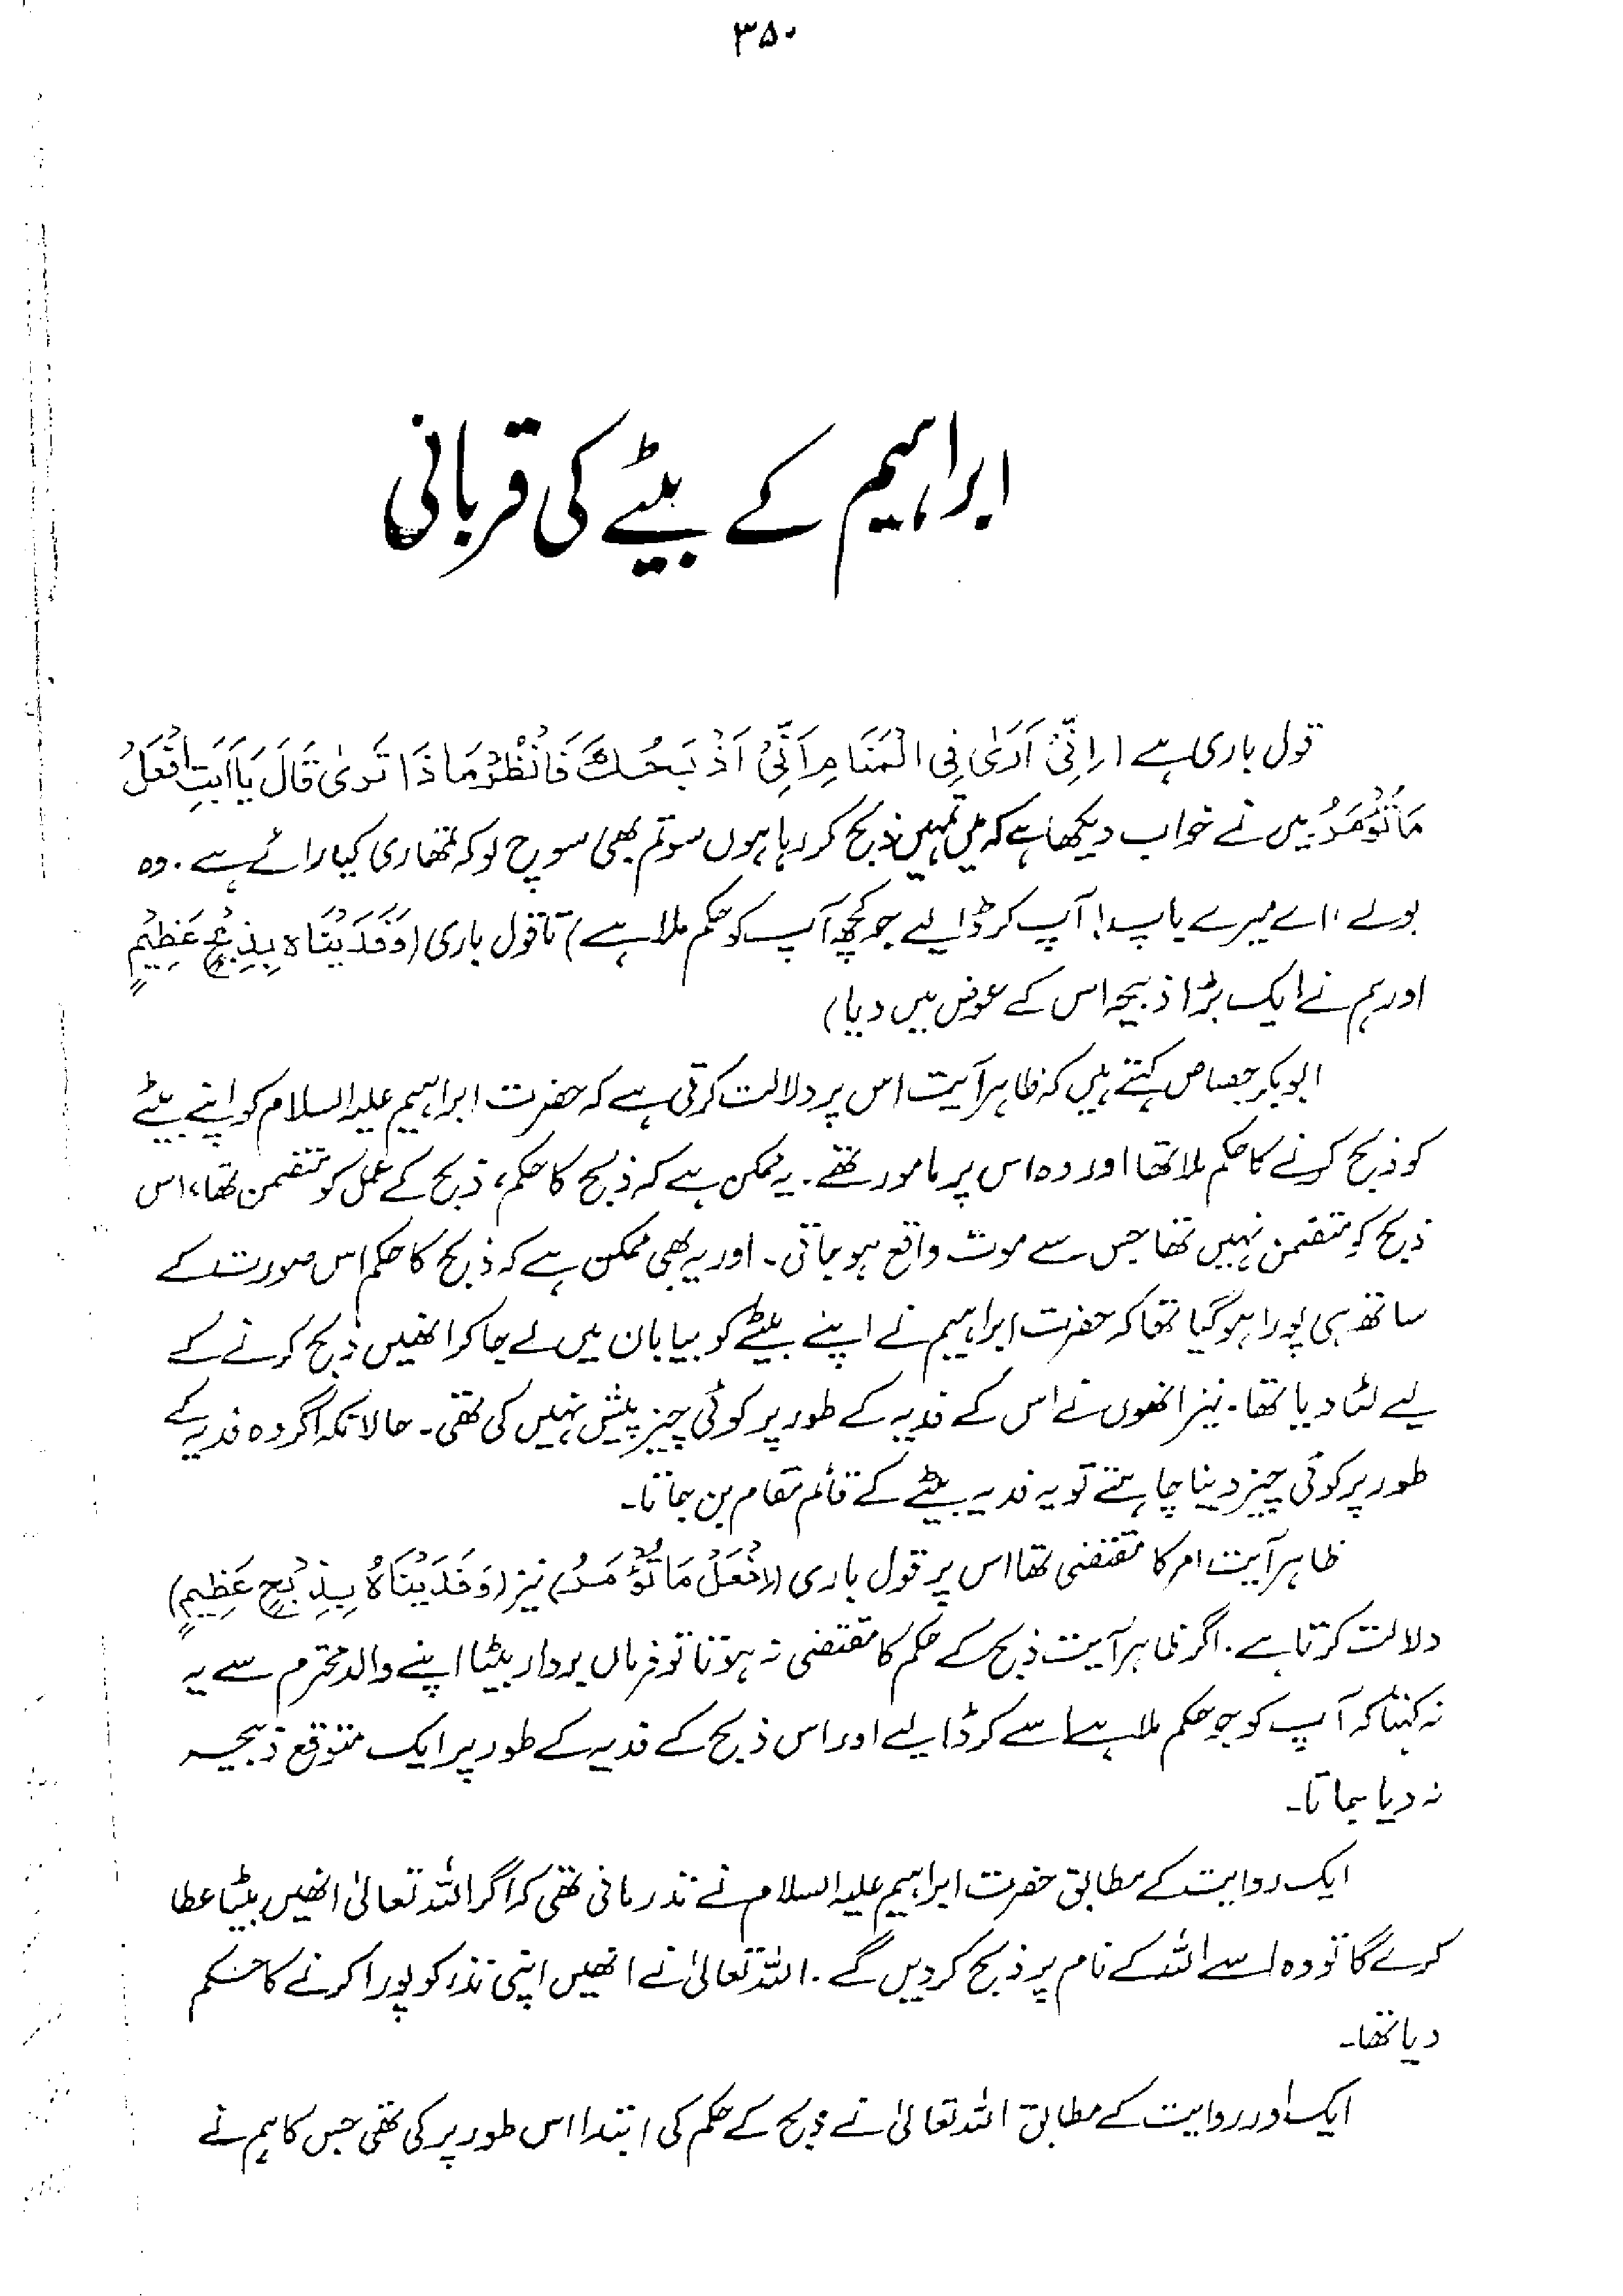 ۳۵۰
ابراہیم کے بیٹے کی قربانی
قول باری ہے (اِنِّیْ اَرٰی فِی الْمَنَامِ اَنِّیْ اَذْبَحُکَ فَانْظُرْ مَاذَا تَرٰی قَالَ یَا اَبَتِ افْعَلْ
مَا تُؤْمَرُ میں نے خواب دیکھا ہے کہ میں تمہیں ذبح کر رہا ہوں سو تم بھی سوچ لو کہ تمھاری کیا رائے ہے۔ وہ
بولے، اے میرے باپ! آپ کر ڈالیے جو کچھ آپ کو حکم ملا ہے) تا قول باری (وَفَدَیْنَاہُ بِذِبْحٍ عَظِیْمٍ
اور ہم نے ایک بڑا ذبیحہ اس کے عوض میں دیا)
ابوبکر جصاص کہتے ہیں کہ ظاہر آیت اس پر دلالت کرتی ہے کہ حضرت ابراہیم علیہ السلام کو اپنے بیٹے
کو ذبح کرنے کا حکم ملا تھا اور وہ اس پر مامور تھے۔ یہ ممکن ہے کہ ذبح کا حکم، ذبح کے عمل کو متضمن تھا، اس
ذبح کو متضمن نہیں تھا جس سے موت واقع ہو جاتی۔ اور یہ بھی ممکن ہے کہ ذبح کا حکم اس صورت کے
ساتھ ہی پورا ہو گیا تھا کہ حضرت ابراہیم نے اپنے بیٹے کو بیابان میں لے جا کر انھیں ذبح کرنے کے
لیے لٹا دیا تھا۔ نیز انھوں نے اس کے فدیہ کے طور پر کوئی چیز پیش نہیں کی تھی۔ حالانکہ اگر وہ فدیہ کے
طور پر کوئی چیز دینا چاہتے تو یہ فدیہ بیٹے کے قائم مقام بن جاتا۔
ظاہر آیت امر کا مقتضی تھا اس پر قول باری (اِفْعَلْ مَا تُؤْمَرُ) نیز (وَفَدَیْنَاہُ بِذِبْحٍ عَظِیْمٍ)
دلالت کرتا ہے۔ اگر ظاہر آیت ذبح کے حکم کا مقتضی نہ ہوتا تو فرماں بردار بیٹا اپنے والد محترم سے یہ
نہ کہتا کہ آپ کو جو حکم ملا ہے اسے کر ڈالیے اور اس ذبح کے فدیہ کے طور پر ایک متوقع ذبیحہ
نہ دیا جاتا۔
ایک روایت کے مطابق حضرت ابراہیم علیہ السلام نے نذر مانی تھی کہ اگر اللہ تعالیٰ انھیں بیٹا عطا
کرے گا تو وہ اسے اللہ کے نام پر ذبح کر دیں گے۔ اللہ تعالیٰ نے انھیں اپنی نذر کو پورا کرنے کا حکم
دیا تھا۔
ایک اور روایت کے مطابق اللہ تعالیٰ نے ذبح کے حکم کی ابتدا اس طور پر کی تھی جس کا ہم نے